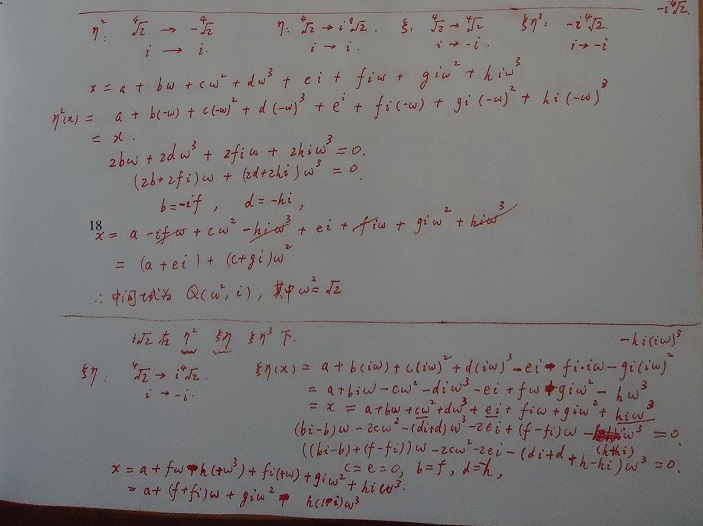 -i⁴√2.
η²: ⁴√2 → -⁴√2 η: ⁴√2 → i⁴√2 ξ: ⁴√2 → ⁴√2 ξη³: -i⁴√2.
i → i. i → i. i → -i. i → -i
x = a + bω + cω² + dω³ + ei + fiω + giω² + hiω³
η²(x) = a + b(-ω) + c(-ω)² + d(-ω)³ + ei + fi(-ω) + gi(-ω)² + hi(-ω)³
= x.
2bω + 2dω³ + 2fiω + 2hiω³ = 0.
(2b+2fi)ω + (2d+2hi)ω³ = 0.
b = -if, d = -hi,
18
x = a - ifω + cω² - hiω³ + ei + fiω + giω² + hiω³
= (a+ei) + (c+gi)ω²
∴ 中间域为 Q(ω², i), 其中 ω² = √2
i√2 在 η² ξη ξη³ 下.
-hi(iω)³
ξη: ⁴√2 → i⁴√2. ξη(x) = a + b(iω) + c(iω)² + d(iω)³ - ei - fi·iω - gi(iω)²
i → -i. = a + biω - cω² - diω³ - ei + fω + giω² - hω³
= x = a + bω + cω² + dω³ + ei + fiω + giω² + hiω³
(bi-b)ω - 2cω² - (di+d)ω³ - 2ei + (f-fi)ω - (h+hi)ω³ = 0.
((bi-b)+(f-fi))ω - 2cω² - 2ei - (di+d+h-hi)ω³ = 0.
c = e = 0, b = f, d = -h,
x = a + fω - h(+ω³) + fi(+ω) + giω² + hiω³.
= a + (f+fi)ω + giω² - h(1-i)ω³